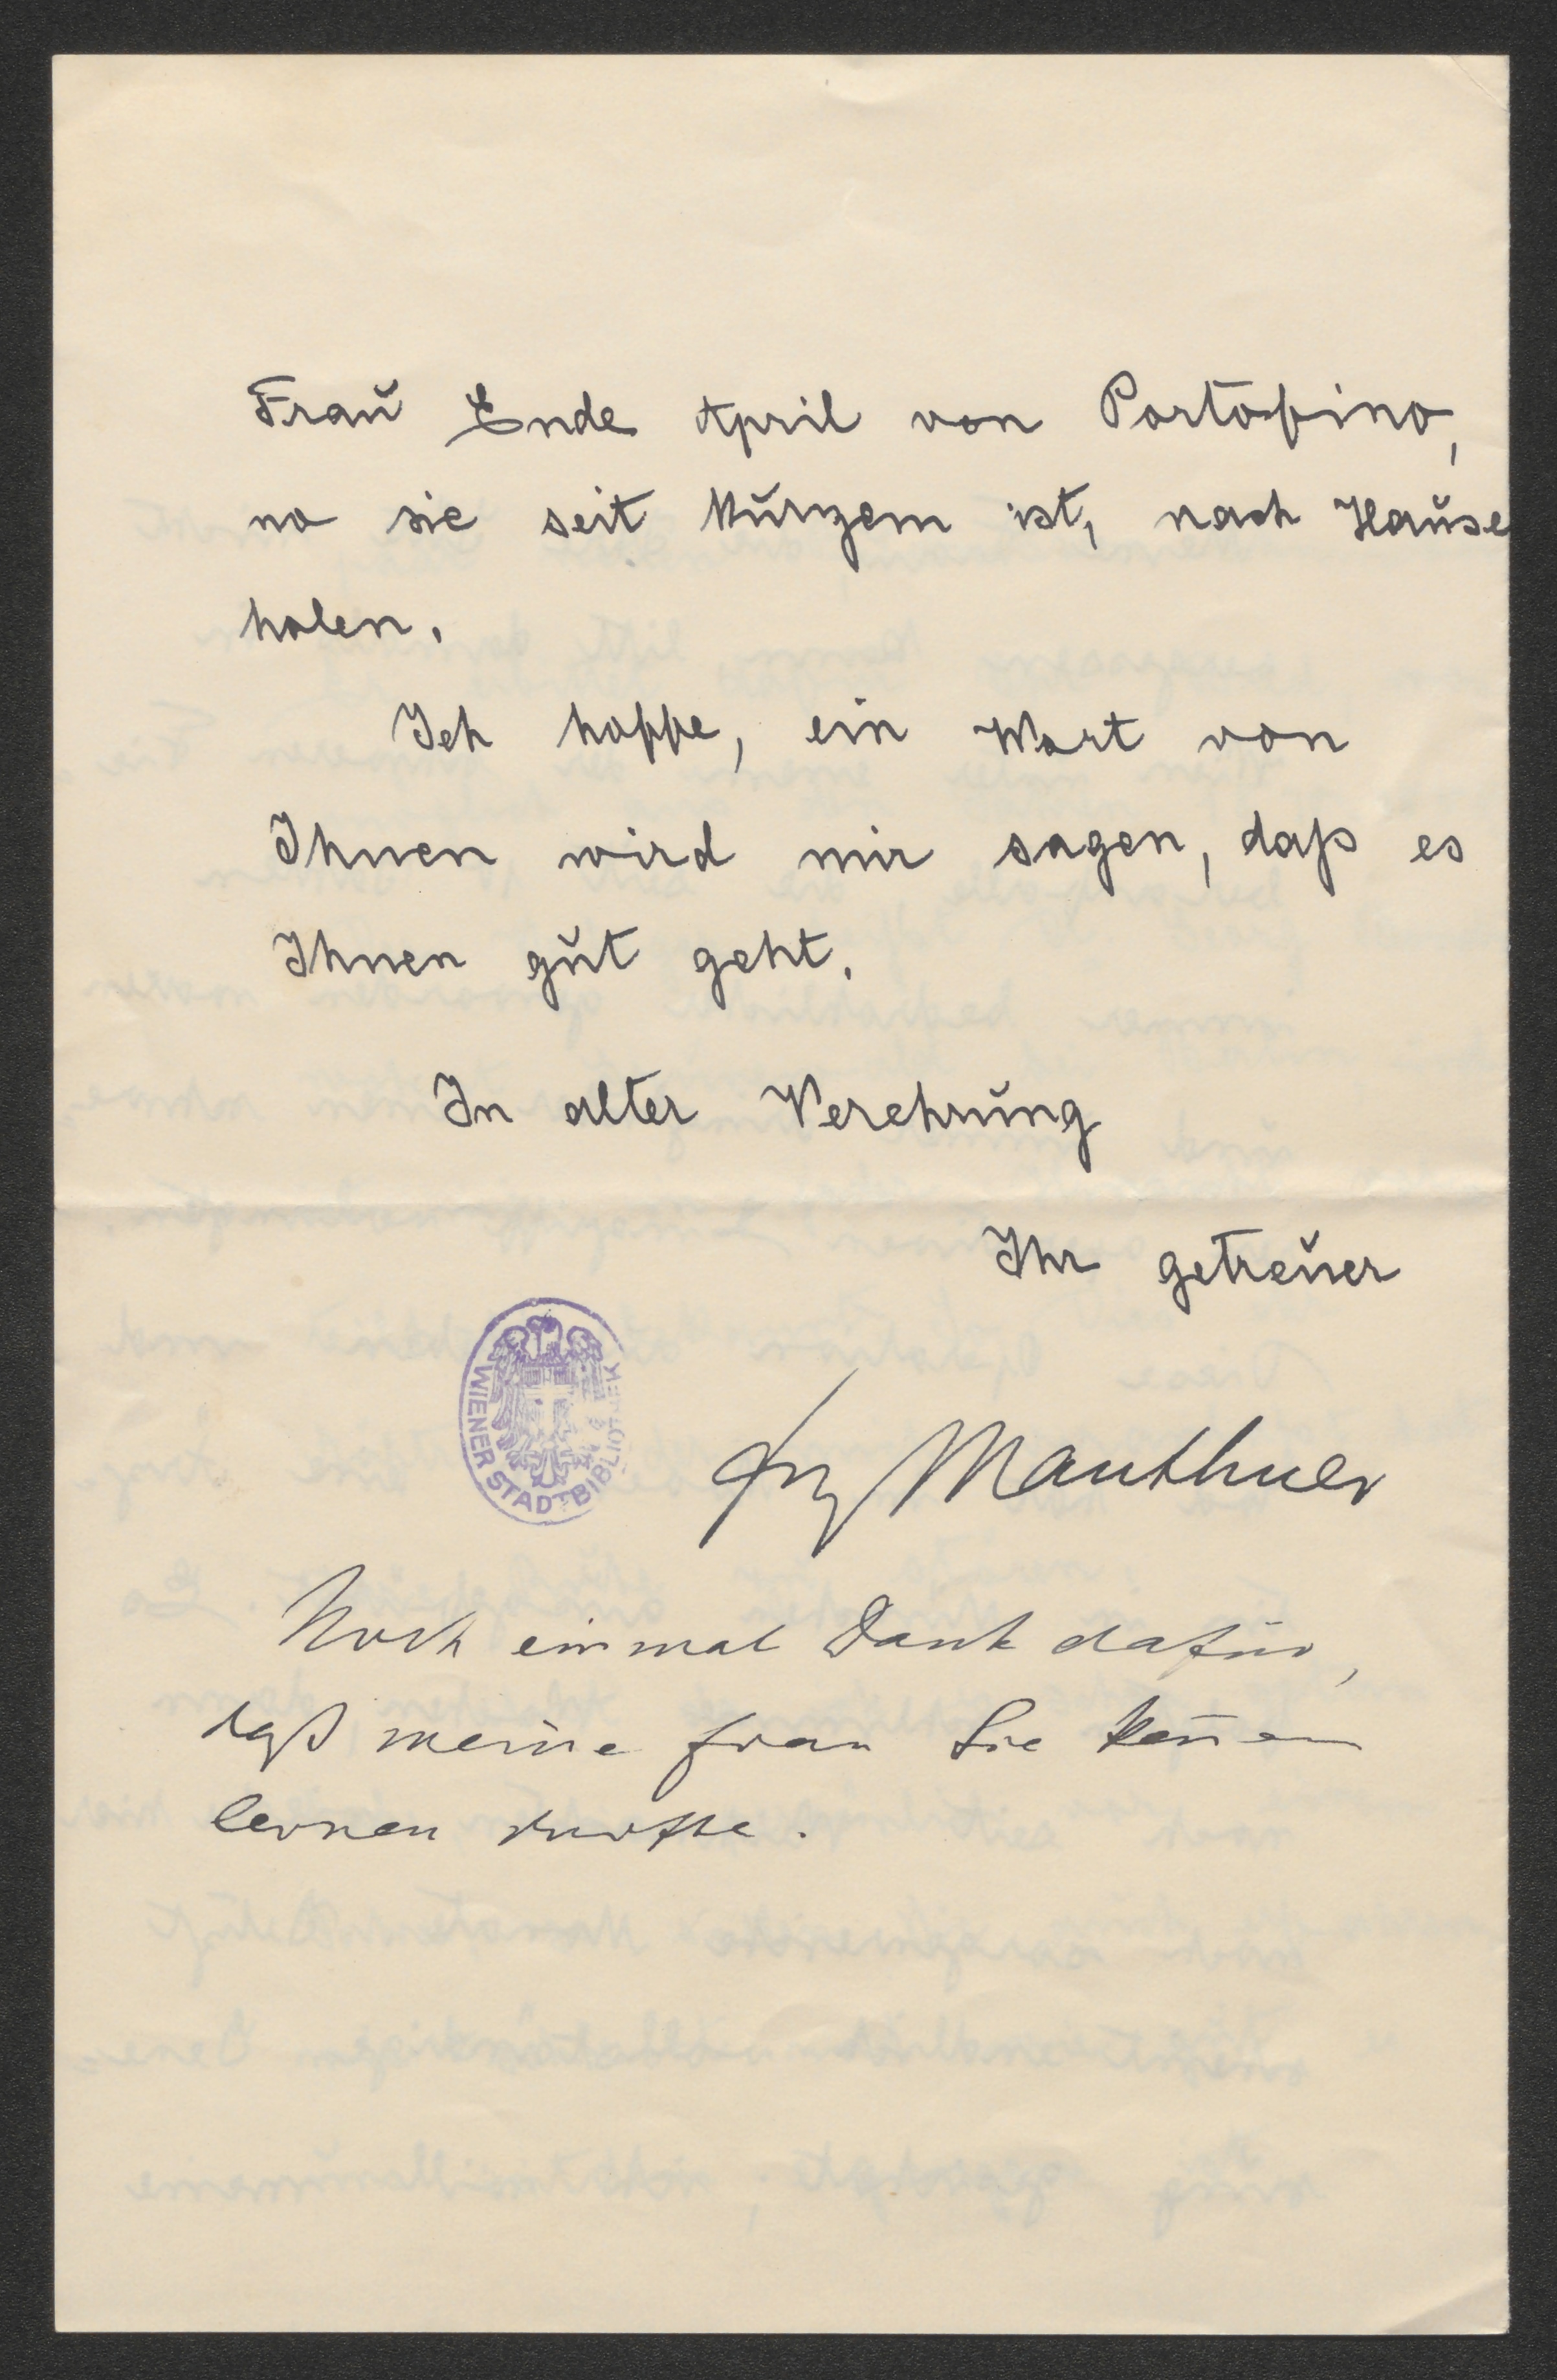 Frau Ende April von Portofino,
wo sie seit Kurzem ist, nach Hause
holen.
Ich hoffe, ein Wort von
Ihnen wird mir sagen, daß es
Ihnen gut geht.
In alter Verehrung
Ihr getreuer
WIENER STADTBIBLIOTHEK
Fritz Mauthner
Noch einmal Dank dafür,
daß meine Frau Sie kennen
lernen durfte.